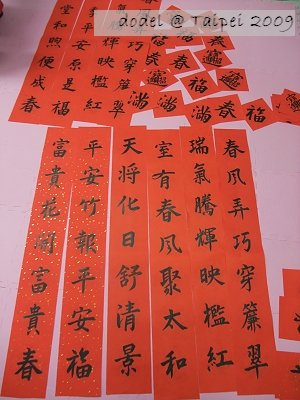 dodel @ Taipei 2009
巧穿簾翠
輝映檻紅
平安原是福
堂和煦便成春
春
福
滿
滿
春
福
滿
春風弄巧穿簾翠
瑞氣騰輝映檻紅
室有春風聚太和
天將化日舒清景
平安竹報平安福
富貴花開富貴春